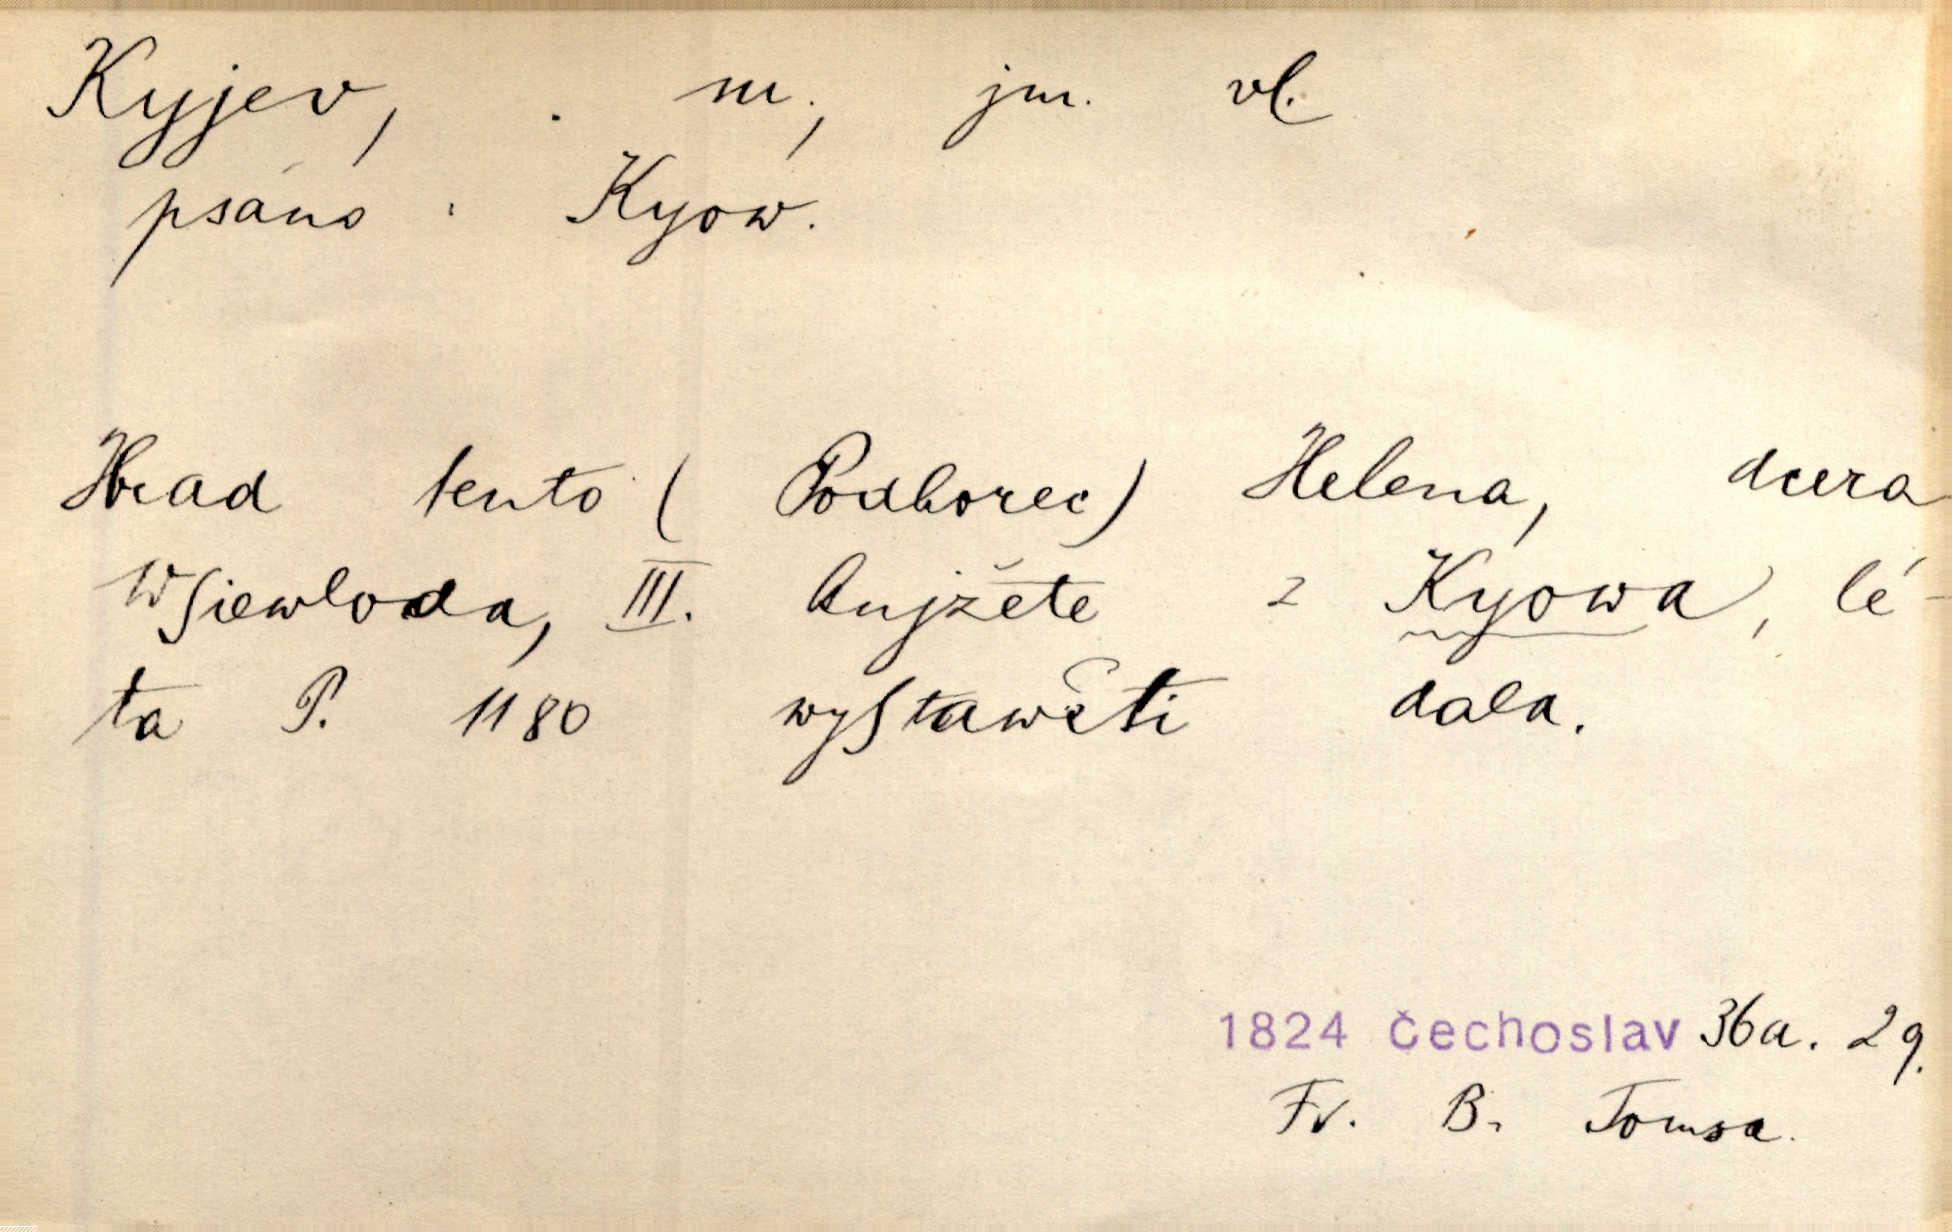 Kyjev, m., jm. vl.
psáno: Kyow.
Hrad tento (Podhorec) Helena, dcera
Wsiewloda, III. knjžete z Kyowa, lé-
ta P. 1180 wystawěti dala.
1824 Čechoslav 36a. 29.
Fr. B. Tomsa.